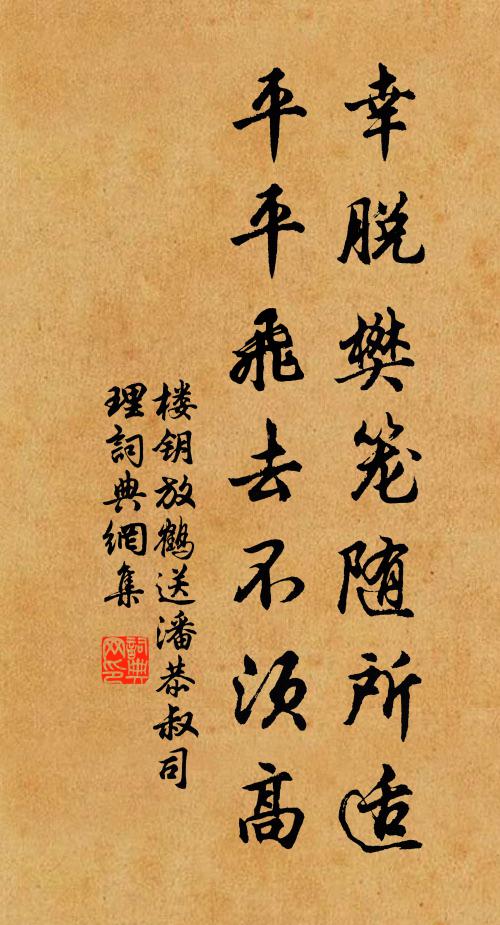 幸脱樊笼随所适
平平飛去不须高
楼钥放鶴送潘恭叔司
理詞典網集
詞典
网印